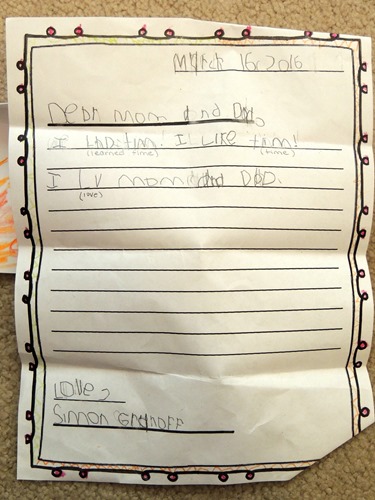 March 16, 2016
Dear mom and Dad,
I tim! I LiKe tim!
(learned time) (time)
I LV mom and DaD.
(love)
Love,
Simon GranoFF